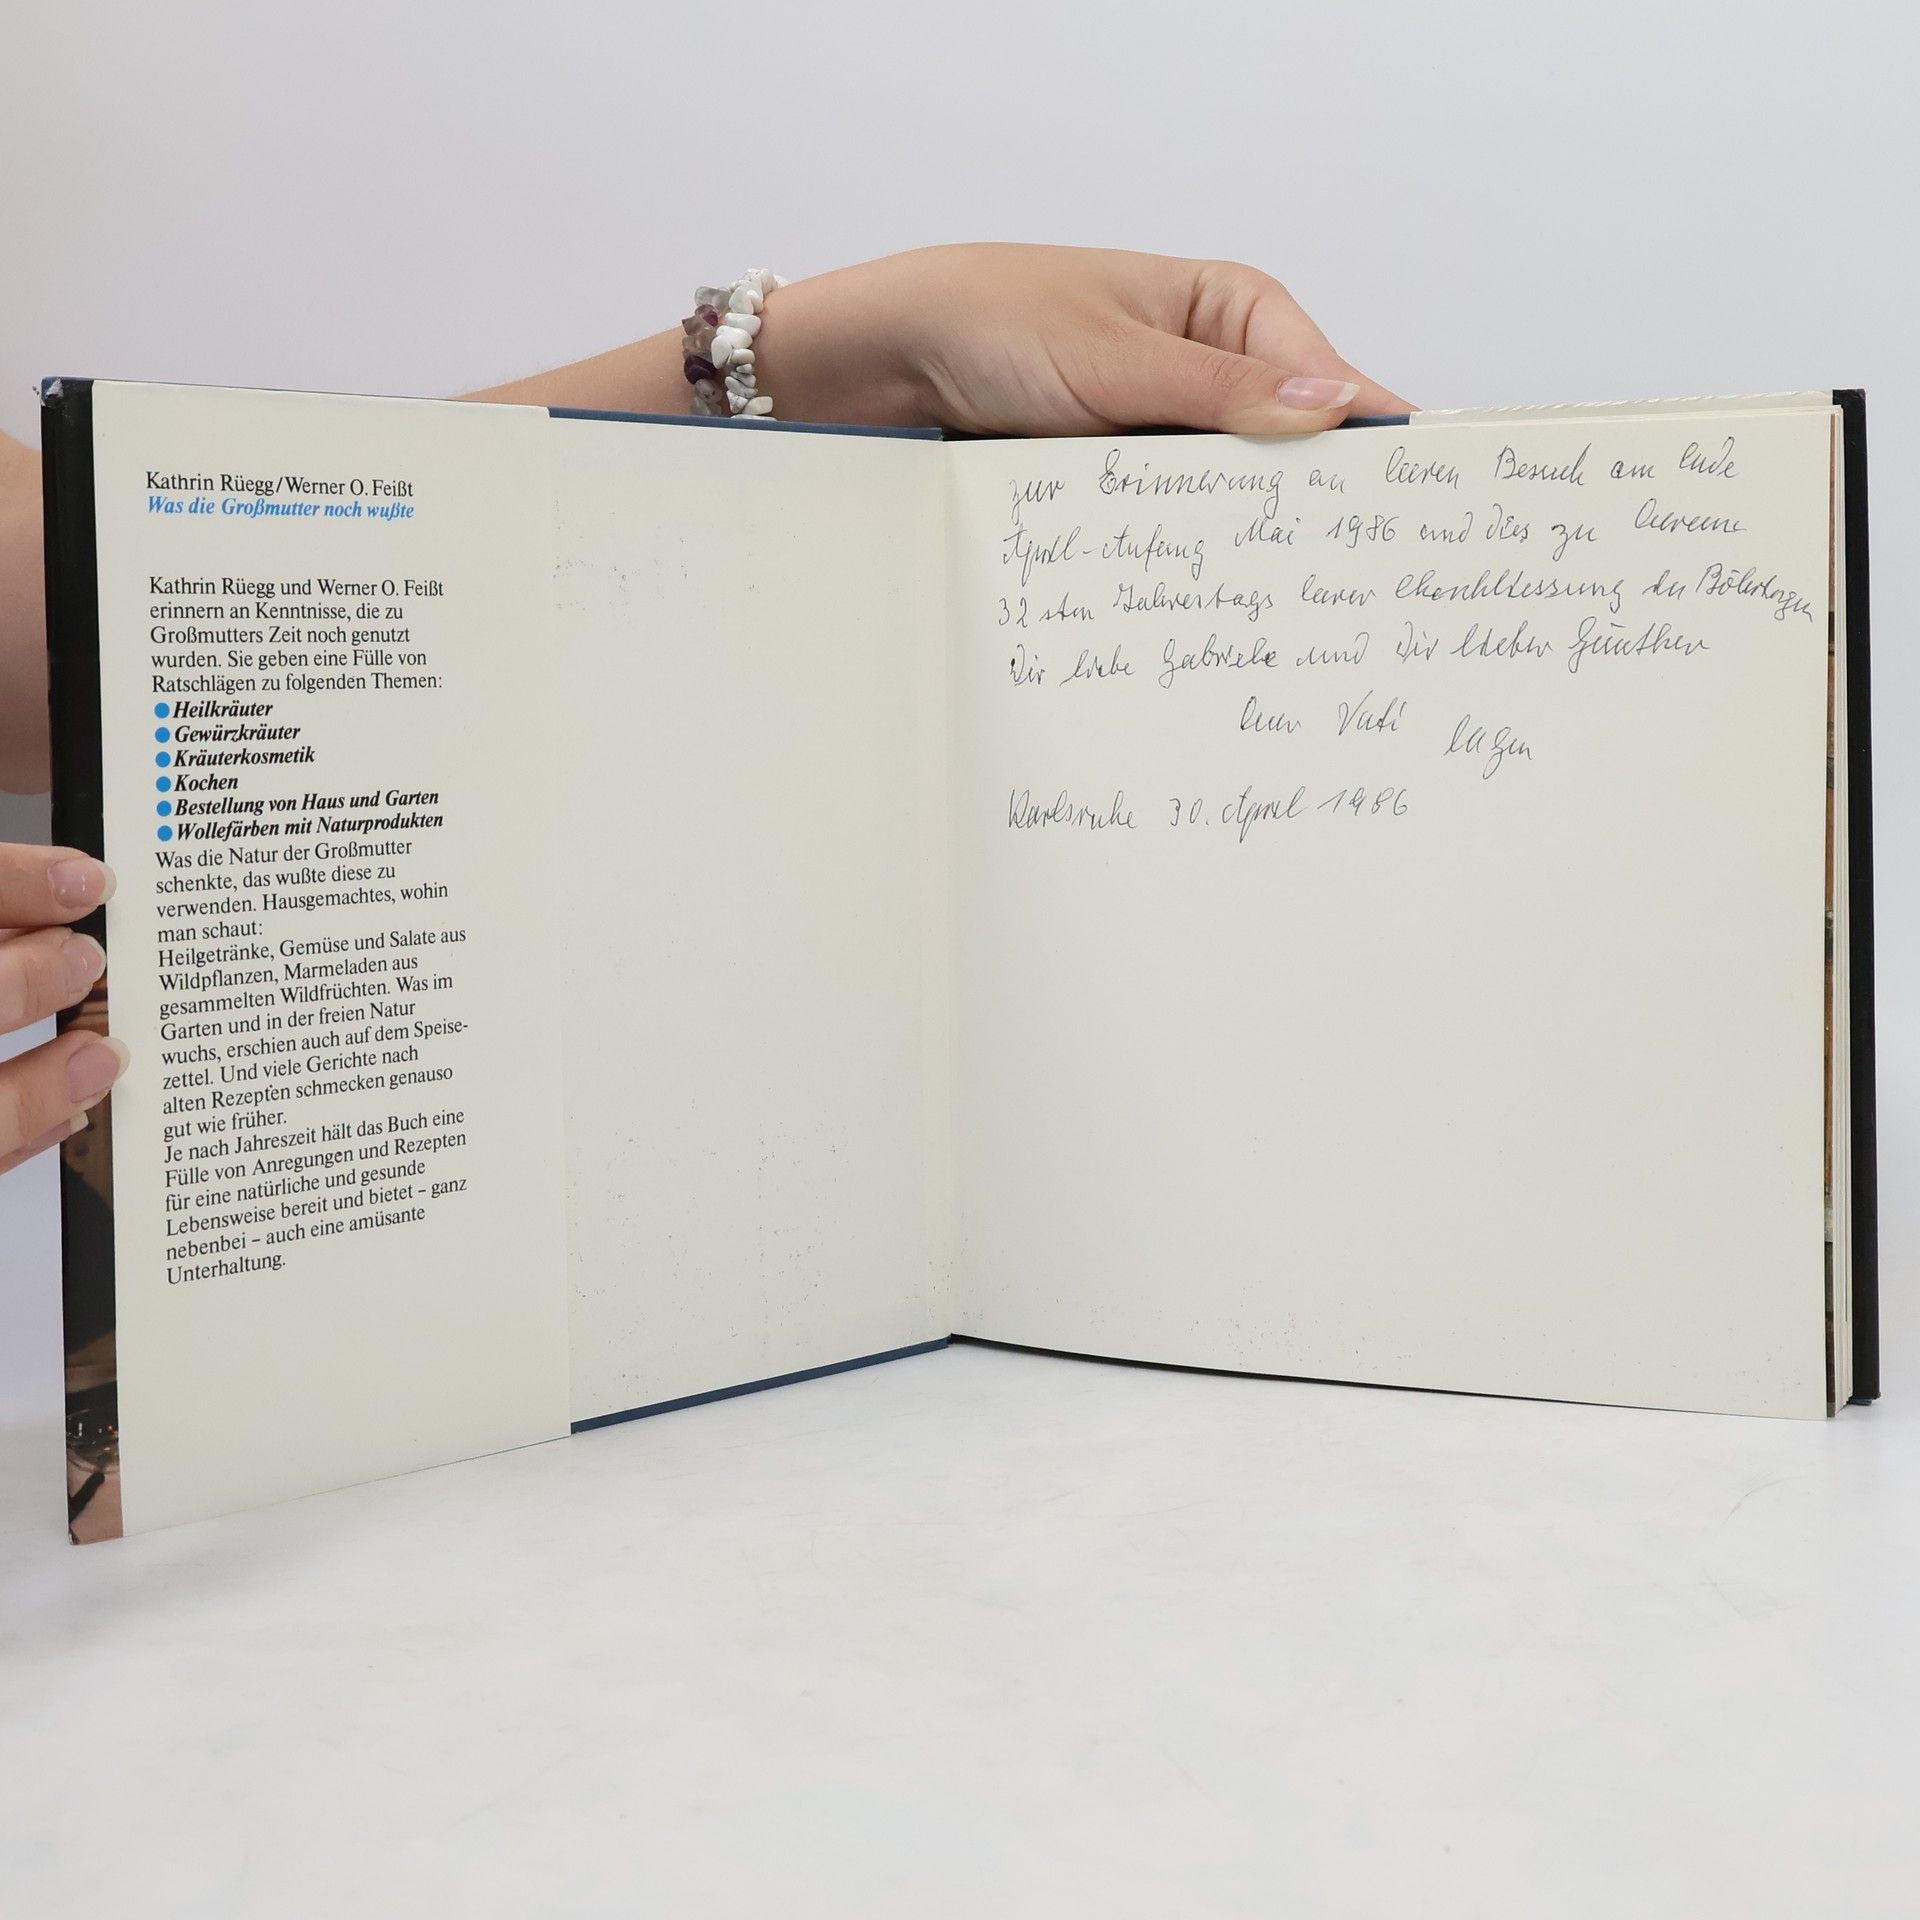 Kathrin Rüegg/Werner O. Feißt
Was die Großmutter noch wußte
Kathrin Rüegg und Werner O. Feißt
erinnern an Kenntnisse, die zu
Großmutters Zeit noch genutzt
wurden. Sie geben eine Fülle von
Ratschlägen zu folgenden Themen:
● Heilkräuter
● Gewürzkräuter
● Kräuterkosmetik
● Kochen
● Bestellung von Haus und Garten
● Wollefärben mit Naturprodukten
Was die Natur der Großmutter
schenkte, das wußte diese zu
verwenden. Hausgemachtes, wohin
man schaut:
Heilgetränke, Gemüse und Salate aus
Wildpflanzen, Marmeladen aus
gesammelten Wildfrüchten. Was im
Garten und in der freien Natur
wuchs, erschien auch auf dem Speise-
zettel. Und viele Gerichte nach
alten Rezepten schmecken genauso
gut wie früher.
Je nach Jahreszeit hält das Buch eine
Fülle von Anregungen und Rezepten
für eine natürliche und gesunde
Lebensweise bereit und bietet – ganz
nebenbei – auch eine amüsante
Unterhaltung.
zur Erinnerung an Eueren Besuch am Ende
April - Anfang Mai 1986 und dies zu Euerem
32 sten Jahrestags Eurer Eheschliessung
Dir liebe Gabriele und Dir lieber Günther
Euer Vati
Eugen
Karlsruhe 30. April 1986